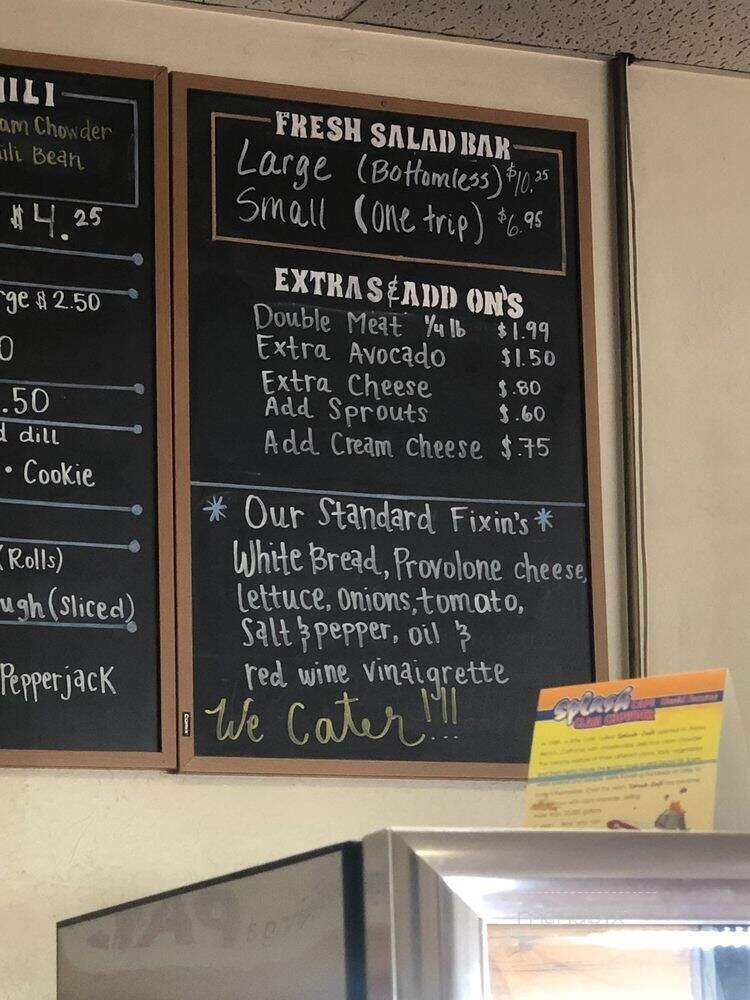 ILI
am Chowder
ili Bean
$4.25
ge $2.50
0
.50
d dill
• Cookie
(Rolls)
ugh (sliced)
Pepperjack
FRESH SALAD BAR
Large (Bottomless) $10.25
Small (One trip) $6.95
EXTRAS & ADD ON'S
Double Meat 1/4 lb $1.99
Extra Avocado $1.50
Extra Cheese $.80
Add Sprouts $.60
Add Cream Cheese $.75
* Our Standard Fixin's *
White Bread, Provolone cheese,
lettuce, onions, tomato,
Salt & pepper, oil &
red wine vinaigrette
We Cater!!!
Splash CAFE
CLAM CHOWDER